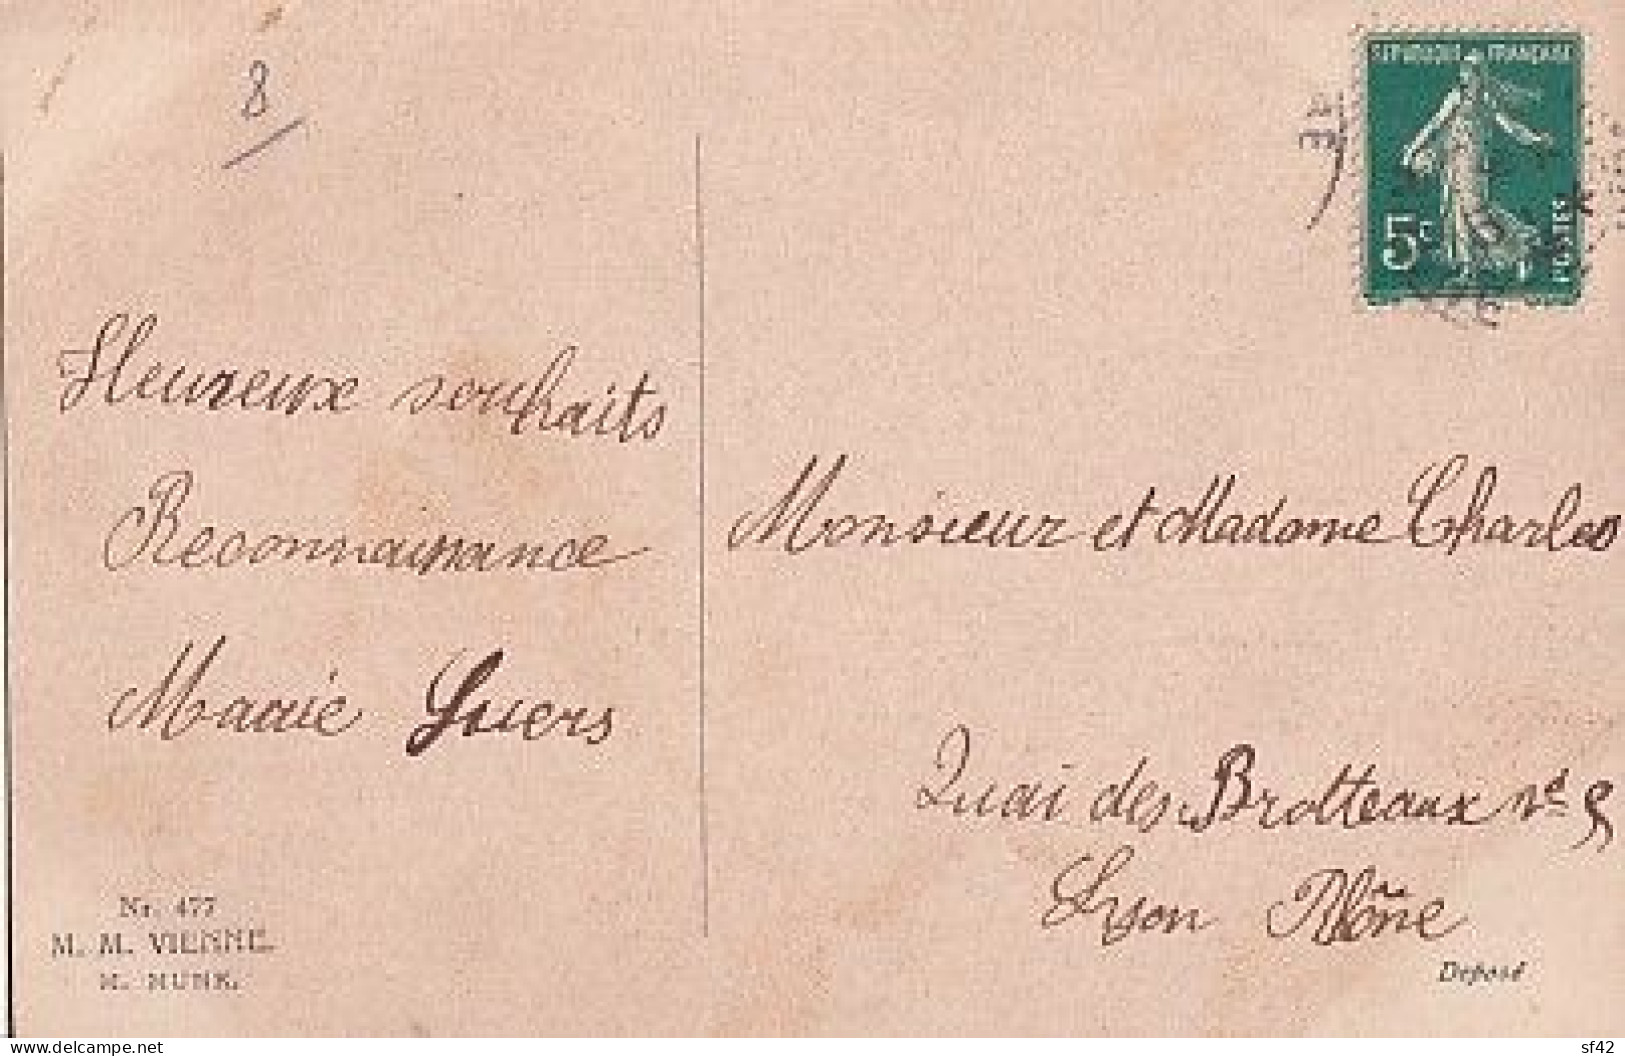 8
REPUBLIQUE FRANÇAISE
5c
POSTES
Heureux souhaits
Reconnaissance
Marie
Monsieur et Madame Charles
Quai des Brotteaux
Lyon Rhône
Nr. 477
M. M. VIENNE.
M. MUNK.
Déposé
delcampe.net
sf42